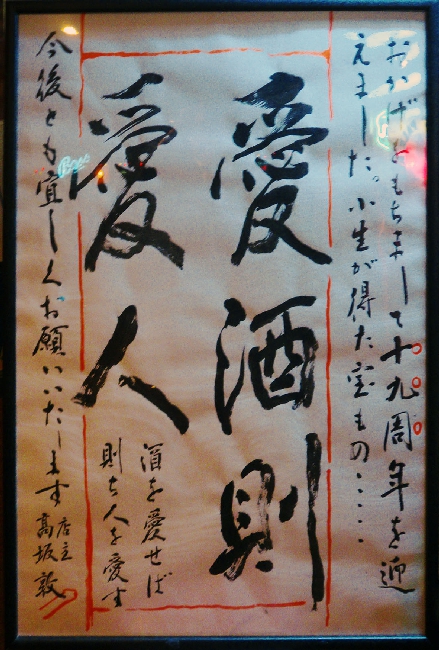 おかげをもちまして十九周年を迎
えました。小生が得た宝もの……
愛酒則
愛人
酒を愛せば
則ち人を愛す
今後とも宜しくお願いいたします
店主
高坂敦